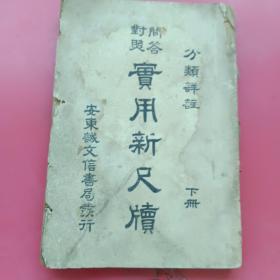 分類詳註
下冊
問答
對照
實用新尺牘
安東誠文信書局發行